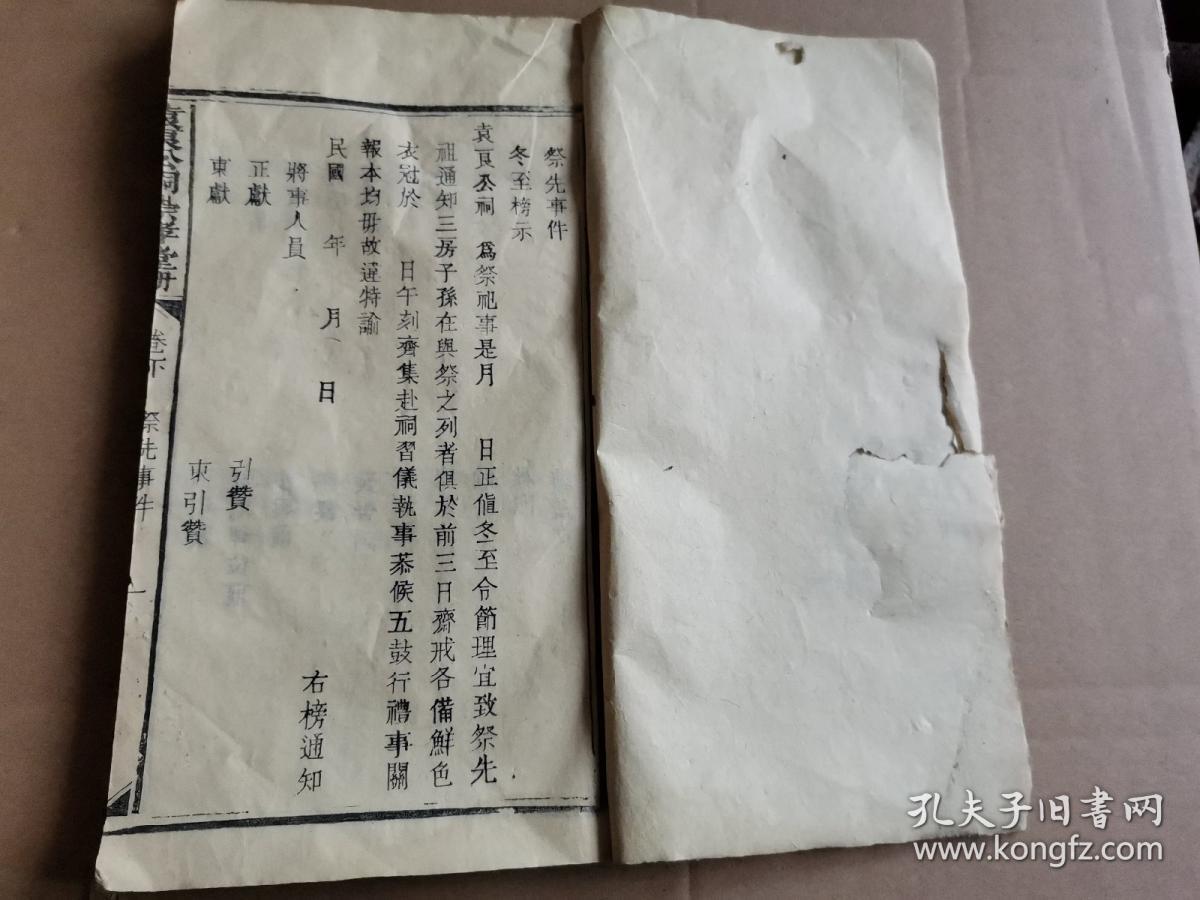 祭先事件
冬至榜示
袁良公祠 為祭祀事是月 日正值冬至令節理宜致祭先
祖通知三房子孫在與祭之列者俱於前三日齋戒各備鮮色
衣冠於 日午刻齊集赴祠習儀執事恭候五鼓行禮事關
報本均毋故違特諭
民國 年 月 日 右榜通知
將事人員
正獻 引贊
東獻 東引贊
袁良公祠 堂冊 卷下 祭先事件 一
孔夫子旧书网
www.kongfz.com